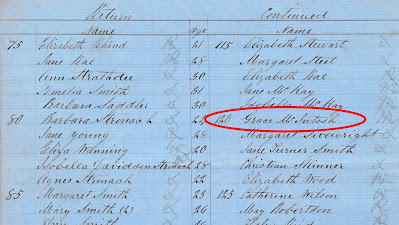 Return Continued
Name age Name
75 Elizabeth 21 115 Elizabeth Stewart
Jane Rae 28 Margaret Steel
Ann Strathdee 30 Elizabeth Rae
Amelia Smith 31 Jane McKay
Barbara Saddler 30 Isobella McKay
80 Barbara Stronach 24 120 Grace McIntosh
Jane Young 28 Margaret Sivewright
Eliza Wanning 20 Jane Turner Smith
Isobella Davidson Stronach 28 Christian Skinner
Agnes Stronach 22 Elizabeth Wood
85 Margaret Smith 23 125 Catherine Wilson
Mary Smith (2) 26 May Robertson
Smith